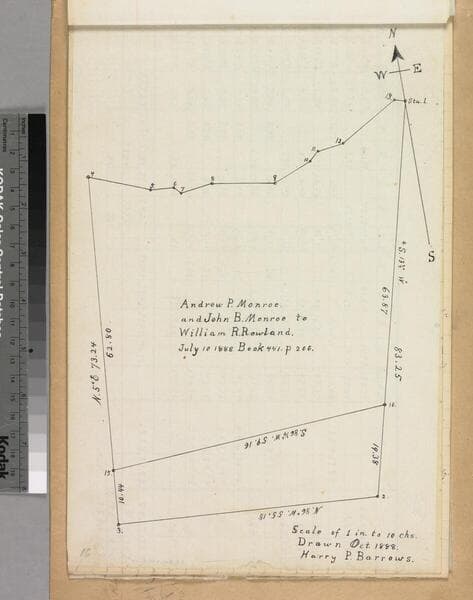 N
W E
13 Sta. 1.
12
11
10
4
5 6 7 8 9
S
63.87
83.25
Andrew P. Monroe.
and John B. Monroe to
William R. Rowland.
July 10 1888 Book 441. p 206.
N. 5° E 73.24
62.80
19.38
10.44
15.
2.
3.
N. 86° W. 55.18
Scale of 1 in. to 10 chs.
Drawn Oct. 1888.
Harry P. Barrows.
Centimetres
Inches
Kodak